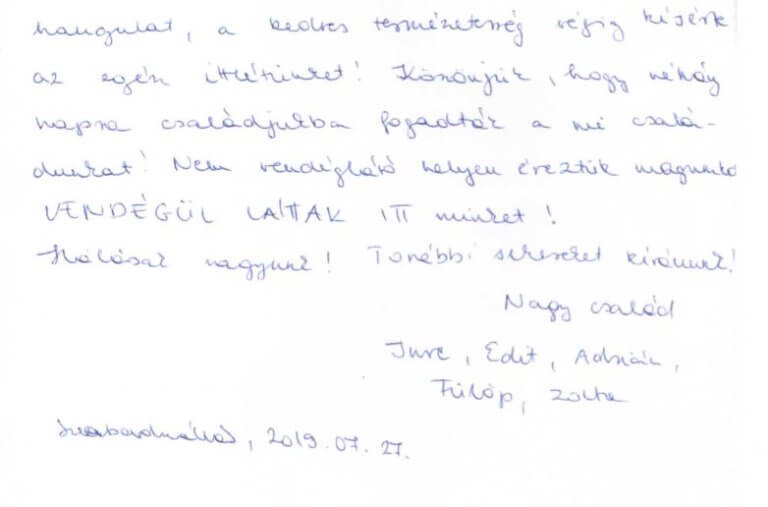 hangulat, a kedves természetesség végig kísérte
az egész ittlétünket! Köszönjük, hogy néhány
napra családjukba fogadták a mi csalá-
dunkat! Nem vendéglátó helyen éreztük magunkat
VENDÉGÜL LÁTTAK ITT minket!
Hálásak vagyunk! További sikereket kívánunk!
Nagy család
Imre, Edit, Adrián,
Fülöp, Zolta
2019.07.27.